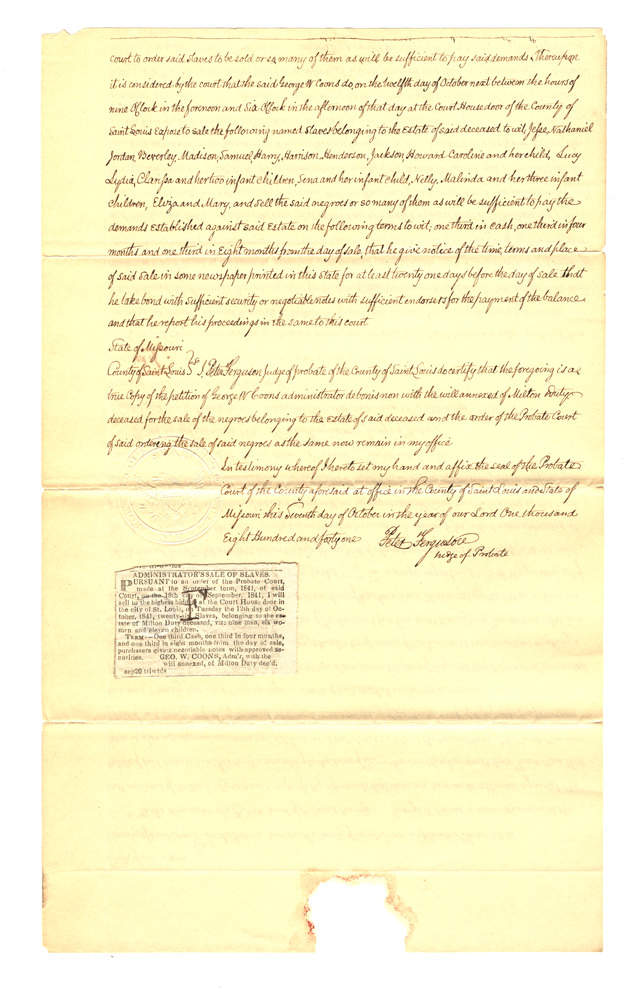 court to order said slaves to be sold or so many of them as will be sufficient to pay said demands. Thereupon
it is considered by the court that the said George W Coons do, on the twelfth day of October next between the hours of
nine Oclock in the forenoon and Six Oclock in the afternoon of that day at the Court House door of the County of
Saint Louis Expose to sale the following named slaves belonging to the Estate of said deceased to wit, Jesse, Nathaniel
Jordan, Beverley, Madison, Samuel, Harry, Harrison, Henderson, Jackson, Howard Caroline and her child, Lucy
Lydia, Clarissa and her two infant children, Sena and her infant child, Nelly, Malinda and her three infant
children, Eliza and Mary, and sell the said negroes or so many of them as will be sufficient to pay the
demands established against said Estate on the following terms to wit; one third in cash, one third in four
months and one third in Eight months from the day of sale, that he give notice of the time, terms and place
of said sale in some newspaper printed in this state for at least twenty one days before the day of sale that
he take bond with sufficient security or negotiable notes with sufficient endorsers for the payment of the balance
and that he report his proceedings in the same to this court
State of Missouri
County of Saint Louis } ss I, Peter Ferguson Judge of probate of the County of Saint Louis do certify that the foregoing is a
true Copy of the petition of George W Coons administrator debonis non with the will annexed of Milton Duty
deceased for the sale of the negroes belonging to the Estate of said deceased and the order of the Probate Court
of said ordering the sale of said negroes as the same now remain in my office
In testimony whereof I hereto set my hand and affix the seal of the Probate
Court of the County aforesaid at office in the County of Saint Louis and State of
Missouri this Seventh day of October in the year of our Lord One thousand
Eight Hundred and forty one Peter Ferguson
Judge of Probate
ADMINISTRATOR'S SALE OF SLAVES.
PURSUANT to an order of the Probate Court,
made at the September term, 1841, of said
Court, on the 18th of September, 1841, I will
sell to the highest bidder at the Court House door in
the city of St. Louis, Tuesday the 12th day of Oc-
tober, 1841, twenty-six Slaves, belonging to the es-
tate of Milton Duty deceased, viz: nine men, six wo-
men and eleven children.
F
TERMS—One third Cash, one third in four months,
and one third in eight months from the day of sale,
purchasers giving negotiable notes with approved se-
curities. GEO. W. COONS, Adm'r, with the
will annexed, of Milton Duty dec'd.
sep20 triwtds